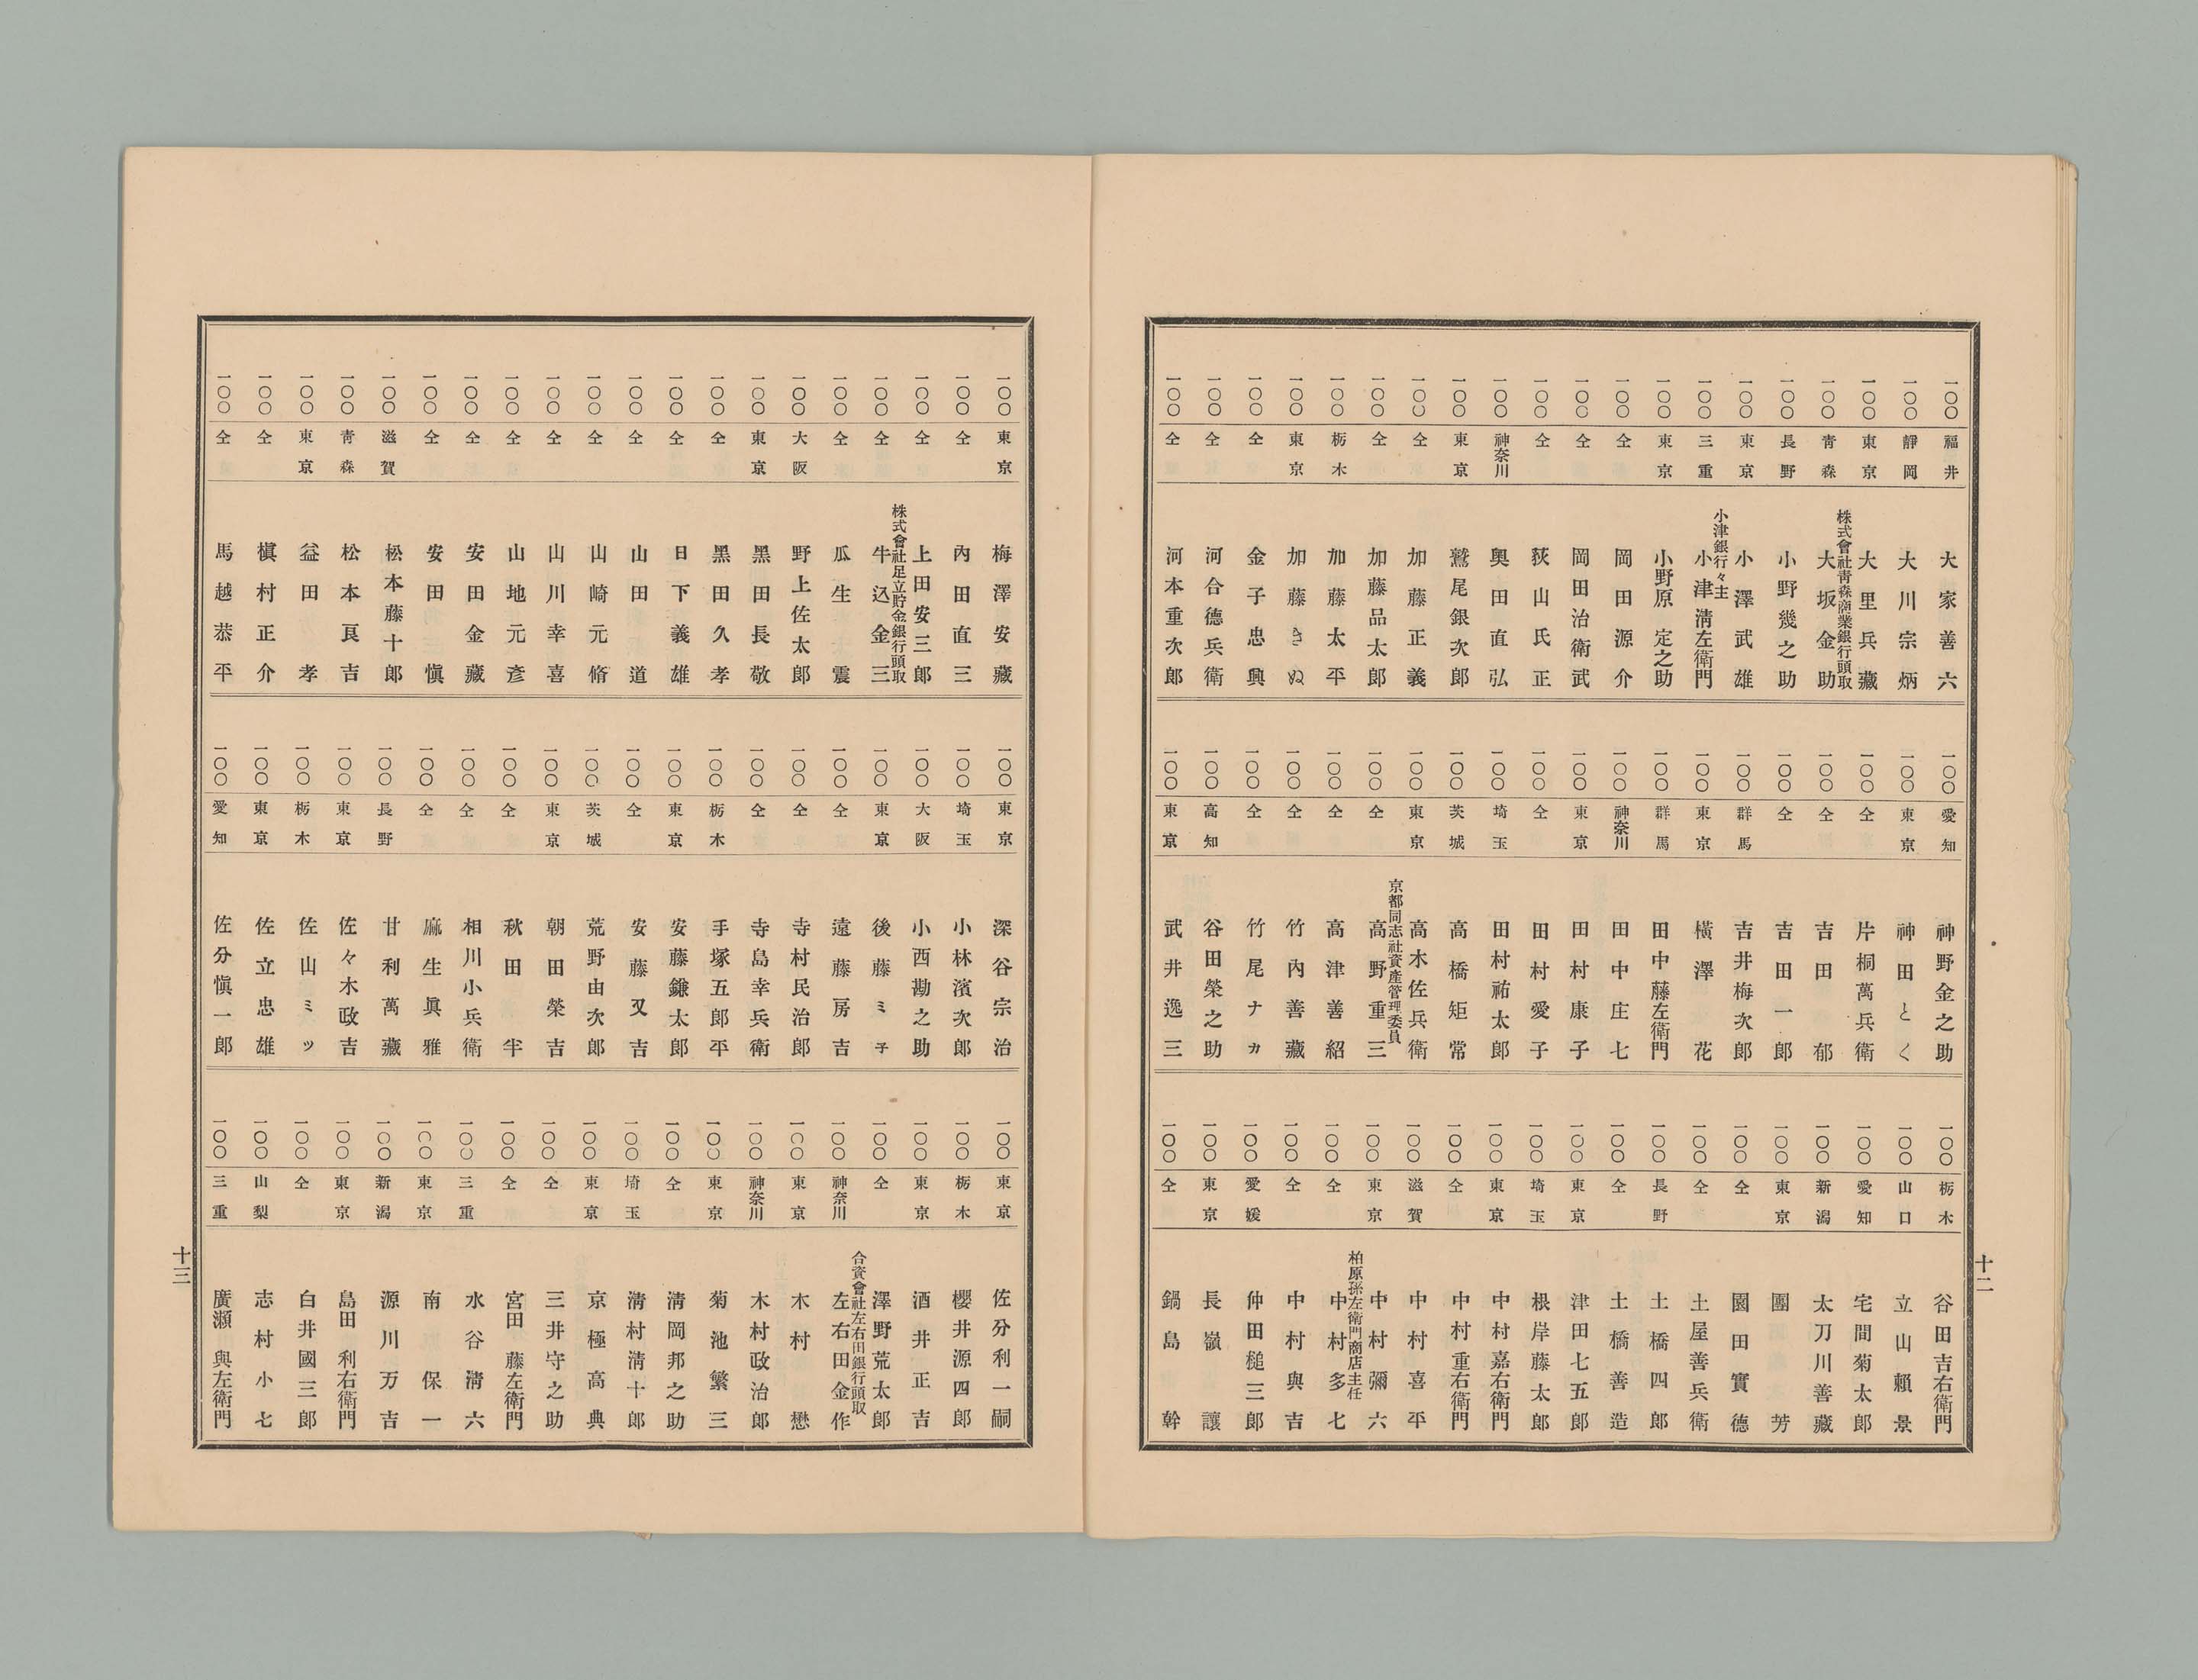 十二
一〇〇 福井 大家善六
一〇〇 靜岡 大川宗炳
一〇〇 東京 大里兵藏
一〇〇 青森 株式會社青森商業銀行頭取 大坂金助
一〇〇 長野 小野幾之助
一〇〇 東京 小澤武雄
一〇〇 三重 小津銀行々主 小津淸左衛門
一〇〇 東京 小野原定之助
一〇〇 仝 岡田源介
一〇〇 仝 岡田治衛武
一〇〇 仝 荻山氏正
一〇〇 神奈川 奥田直弘
一〇〇 東京 鷲尾銀次郎
一〇〇 仝 加藤正義
一〇〇 仝 加藤品太郎
一〇〇 栃木 加藤太平
一〇〇 東京 加藤きぬ
一〇〇 仝 金子忠興
一〇〇 仝 河合德兵衛
一〇〇 仝 河本重次郎
一〇〇 愛知 神野金之助
一〇〇 東京 神田とく
一〇〇 仝 片桐萬兵衛
一〇〇 仝 吉田郁
一〇〇 仝 吉田一郎
一〇〇 群馬 吉井梅次郎
一〇〇 東京 橫澤花
一〇〇 群馬 田中藤左衛門
一〇〇 神奈川 田中庄七
一〇〇 東京 田村康子
一〇〇 仝 田村愛子
一〇〇 埼玉 田村祐太郎
一〇〇 茨城 高橋矩常
一〇〇 東京 高木佐兵衛
一〇〇 仝 京都同志社資産管理委員 高野重三
一〇〇 仝 高津善紹
一〇〇 仝 竹內善藏
一〇〇 仝 竹尾ナカ
一〇〇 高知 谷田榮之助
一〇〇 東京 武井逸三
一〇〇 栃木 谷田吉右衛門
一〇〇 山口 立山賴景
一〇〇 愛知 宅間菊太郎
一〇〇 新潟 太刀川善藏
一〇〇 東京 團芳
一〇〇 仝 園田實德
一〇〇 仝 土屋善兵衛
一〇〇 長野 土橋四郎
一〇〇 仝 土橋善造
一〇〇 東京 津田七五郎
一〇〇 埼玉 根岸藤太郎
一〇〇 東京 中村嘉右衛門
一〇〇 仝 中村重右衛門
一〇〇 滋賀 中村喜平
一〇〇 東京 中村彌六
一〇〇 仝 柏原孫左衛門商店主任 中村多七
一〇〇 仝 中村與吉
一〇〇 愛媛 仲田槌三郎
一〇〇 東京 長嶺讓
一〇〇 仝 鍋島幹
一〇〇 東京 梅澤安藏
一〇〇 仝 內田直三
一〇〇 仝 上田安三郎
一〇〇 仝 株式會社足立貯金銀行頭取 牛込金三
一〇〇 仝 瓜生震
一〇〇 大阪 野上佐太郎
一〇〇 東京 黑田長敬
一〇〇 仝 黑田久孝
一〇〇 仝 日下義雄
一〇〇 仝 山田道
一〇〇 仝 山崎元脩
一〇〇 仝 山川幸喜
一〇〇 仝 山地元彦
一〇〇 仝 安田金藏
一〇〇 仝 安田愼
一〇〇 滋賀 松本藤十郎
一〇〇 青森 松本良吉
一〇〇 東京 益田孝
一〇〇 仝 槇村正介
一〇〇 仝 馬越恭平
一〇〇 東京 深谷宗治
一〇〇 埼玉 小林濱次郎
一〇〇 大阪 小西勘之助
一〇〇 東京 後藤ミ子
一〇〇 仝 遠藤房吉
一〇〇 仝 寺村民治郎
一〇〇 仝 寺島幸兵衛
一〇〇 栃木 手塚五郎平
一〇〇 東京 安藤鎌太郎
一〇〇 仝 安藤又吉
一〇〇 茨城 荒野由次郎
一〇〇 東京 朝田榮吉
一〇〇 仝 秋田半
一〇〇 仝 相川小兵衛
一〇〇 仝 麻生眞雅
一〇〇 長野 甘利萬藏
一〇〇 東京 佐々木政吉
一〇〇 栃木 佐山ミツ
一〇〇 東京 佐立忠雄
一〇〇 愛知 佐分愼一郎
一〇〇 東京 佐分利一嗣
一〇〇 栃木 櫻井源四郎
一〇〇 東京 酒井正吉
一〇〇 仝 澤野荒太郎
一〇〇 神奈川 合資會社左右田銀行頭取 左右田金作
一〇〇 東京 木村懋
一〇〇 神奈川 木村政治郎
一〇〇 東京 菊池繁三
一〇〇 仝 淸岡邦之助
一〇〇 埼玉 淸村淸十郎
一〇〇 東京 京極高典
一〇〇 仝 三井守之助
一〇〇 仝 宮田藤左衛門
一〇〇 三重 水谷淸六
一〇〇 東京 南保一
一〇〇 新潟 源川万吉
一〇〇 東京 島田利右衛門
一〇〇 仝 白井國三郎
一〇〇 山梨 志村小七
一〇〇 三重 廣瀨與左衛門
十三